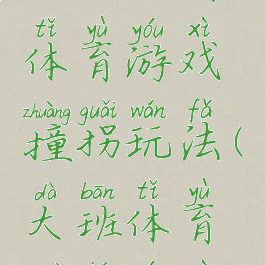 tǐ yù yóu xì
体育游戏
zhuàng guǎi wán fǎ
撞拐玩法(
dà bān tǐ yù
大班体育